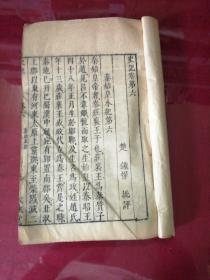 史記卷第六
楚 鍾惺 批評
秦始皇本紀第六
秦始皇帝者秦莊襄王子也莊襄王為秦質子
於趙見呂不韋姬悅而取之生始皇以秦昭王
四十八年正月生於邯鄲及生名為政姓趙氏
年十三歲莊襄王死政代立為秦王當是之時
秦地已并巴蜀漢中越宛有郢置南郡矣北收
上郡以東有河東太原上黨郡東至滎陽滅二